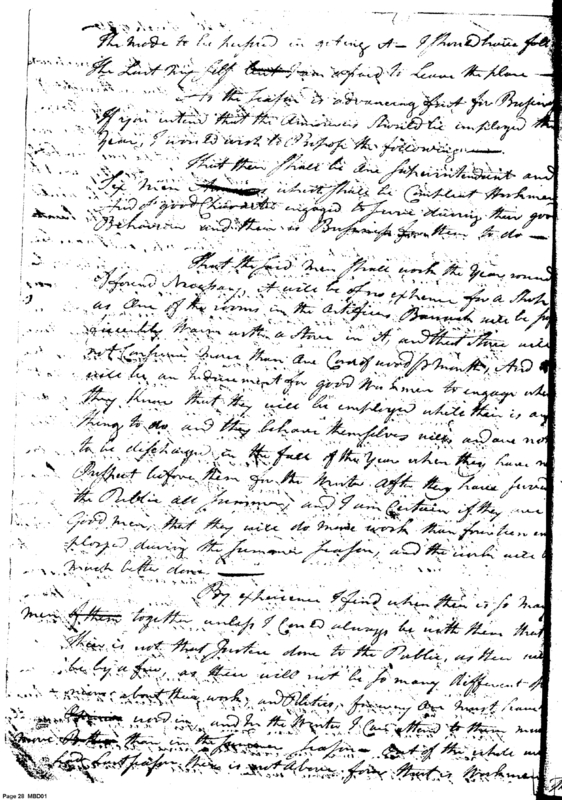 The mode to be pursued in geting it — I should have
the Last my self but I am afraid to Leave the place —
As the season is advancing fast for Business
If you intend that the Armourers should be employed this
Year, I would wish to Propose the following —
That their shall be One Superintendent and
Six men whoe shall be Compleat Workmen
And of good Character engaged to serve during their good
Behaviour and their is Business for them to do —
That the said men shall work the Year round
if found Necessary, it will be of no expence for a Shop
as One of the rooms in the Artificers Barrack will be
warm with a stove in it, and that stove will
not Consume more than One Cord of wood month, And
will be an Inducement for good Workmen to engage when
they know that they will be employed while their is any
thing to do, and they behave themselves well, and are not
to be discharged in the fall of the Year when they have no
Prospect before them for the Winter after they have served
the Publie all Summer, and I am Certain if they are
Good men, that they will do more work than fourteen em
ployed during the Summer Season, and the work will be
much better done —
By experience I find when their is so many
men together unless I Could always be with them that
their is not that Justice done to the Publie, as their will
be by a few, as their will not be so many different
about their work, and Politics, for every One must have
word in, and In the Winter I Can attend to them
more than in the season — Out of the whole we
had last year their is not Above four that is Workmen
Page 28 MBD01